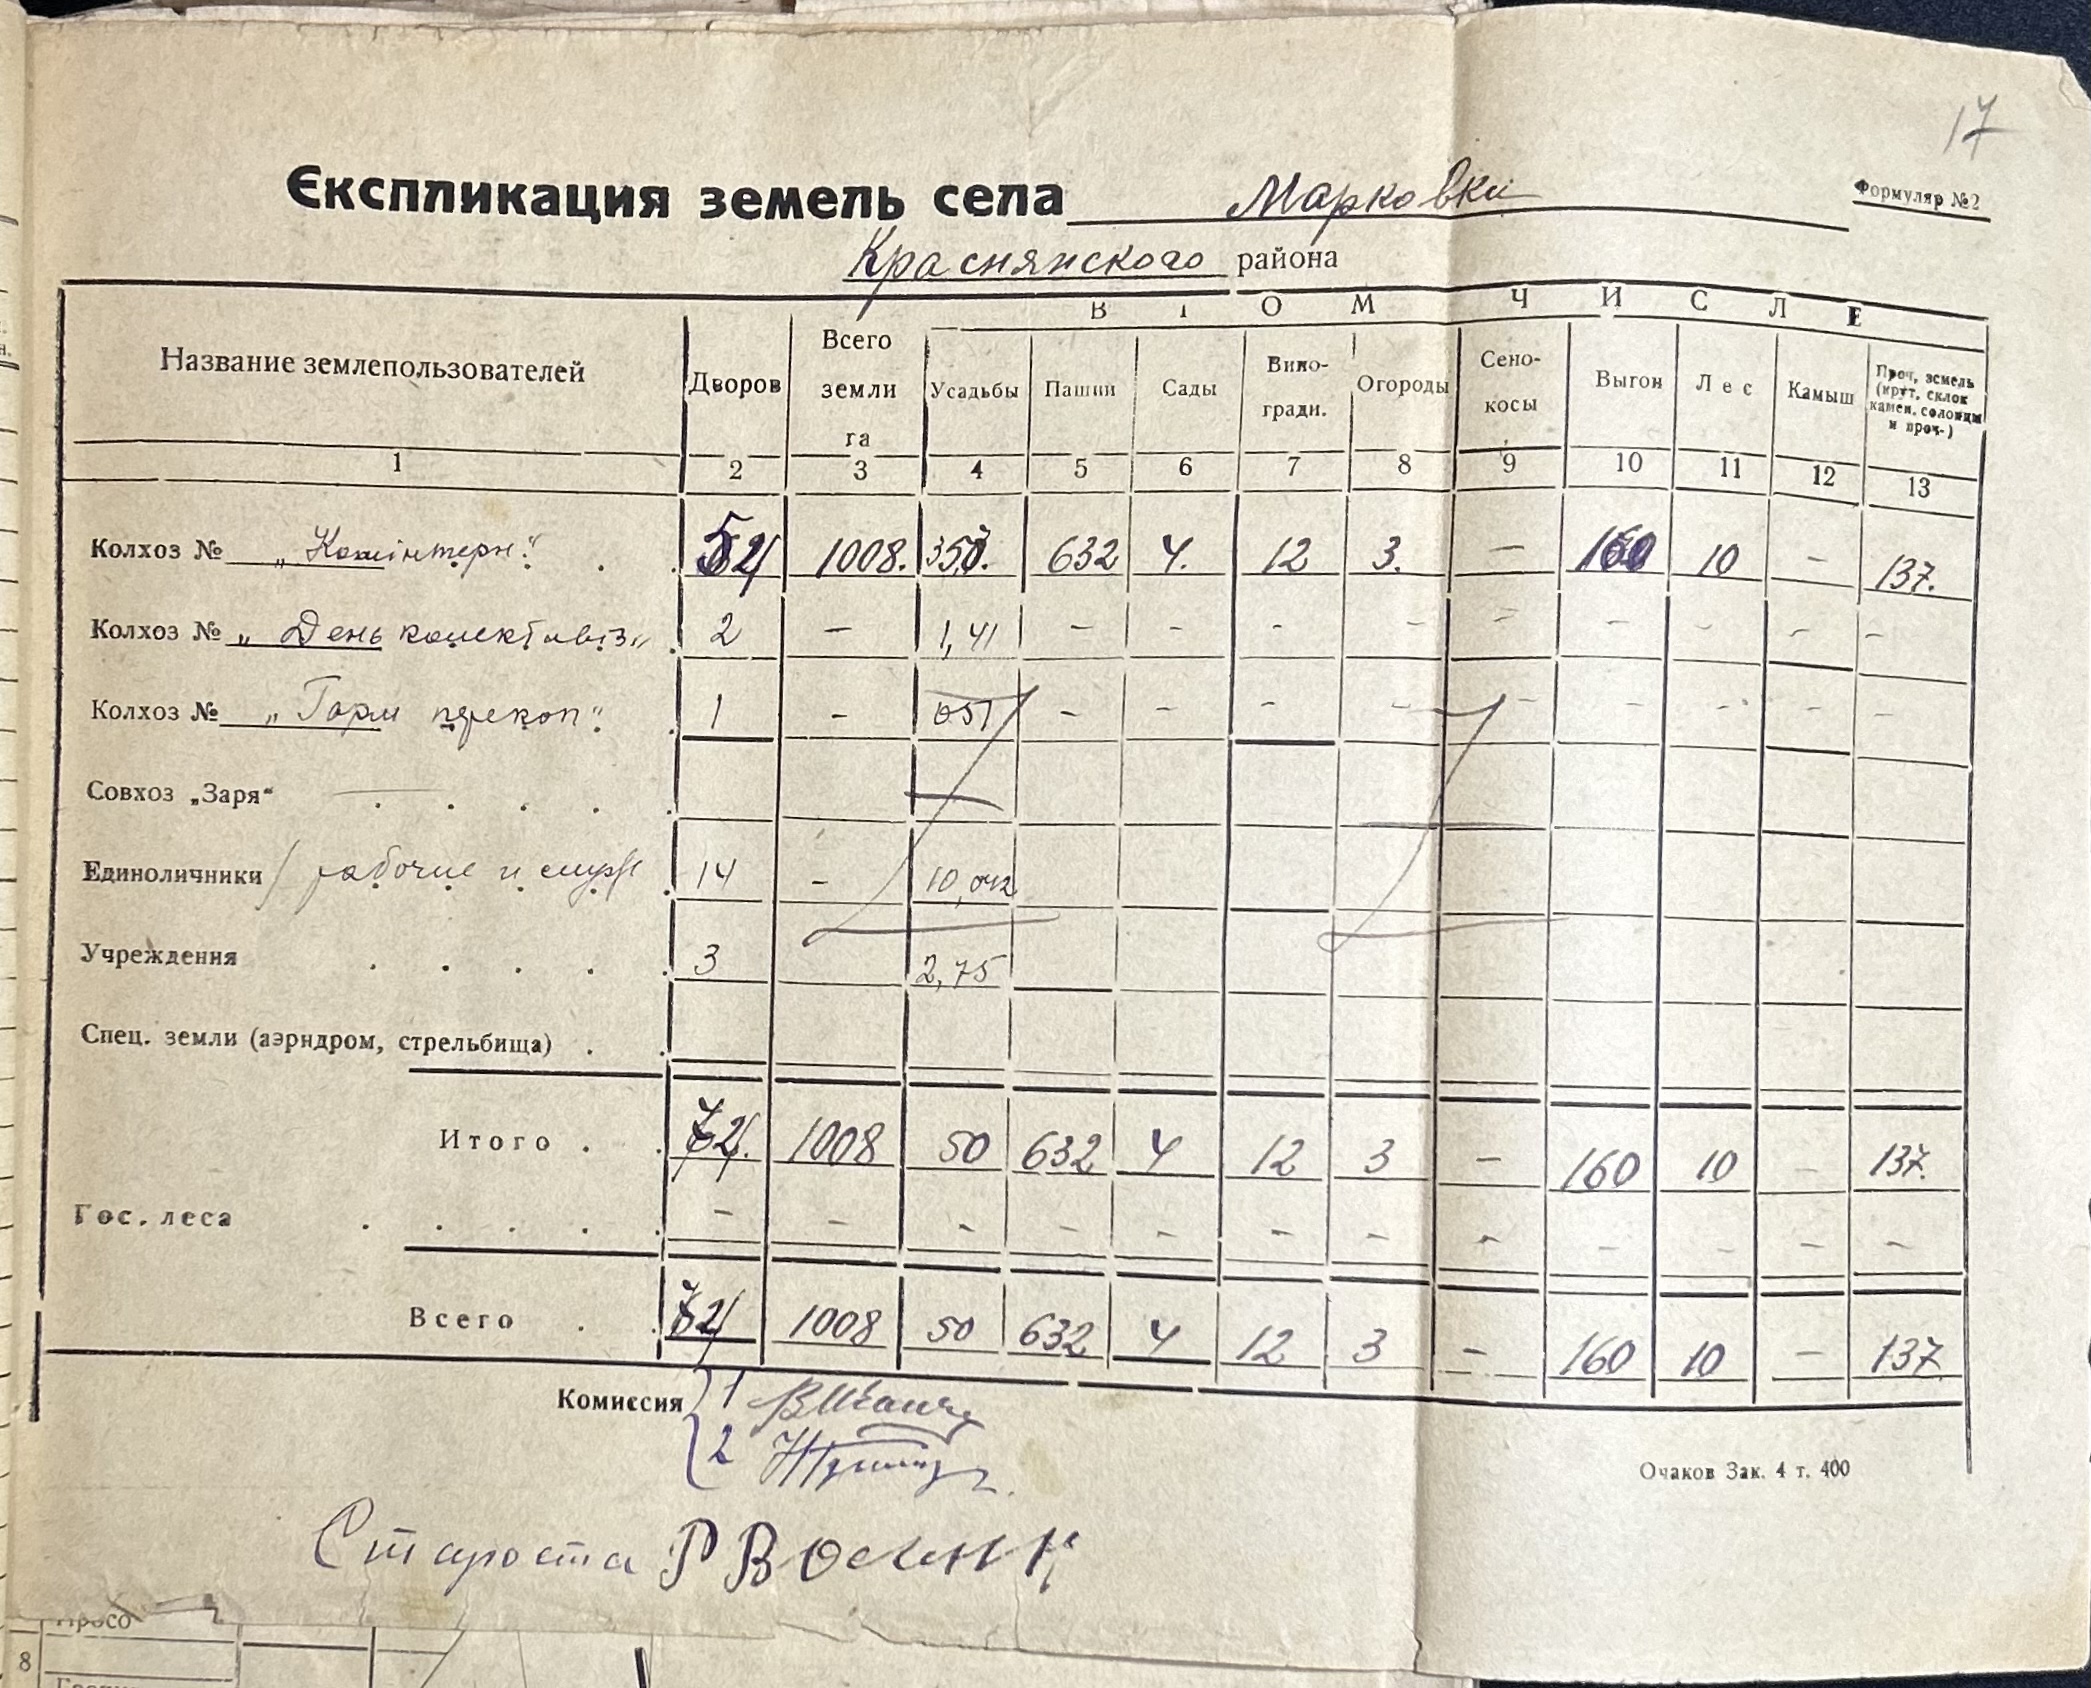 17
Експликация земель села Марковки
Формуляр №2
Краснянского района
В ТОМ ЧИСЛЕ
Название землепользователей Дворов Всего земли га Усадьбы Пашни Сады Вино-гради. Огороды Сено-косы Выгон Лес Камыш Проч, земель (крут, склок камен. солонцы и проч-)
1 2 3 4 5 6 7 8 9 10 11 12 13
Колхоз № „Комінтерн." 52 1008. 632 4. 12 3. — 160 10 — 137.
Колхоз № „День колективіз„ 2 — 1,41 — — — — — — — — —
Колхоз № „ перекоп" 1 — 051 — — — — — — — — —
Совхоз „Заря" —
Единоличники / рабочие и служ 14 — 10,042
Учреждения 3 2,75
Спец. земли (аэрндром, стрельбища)
Итого 72. 1008 50 632 4 12 3 — 160 10 — 137.
Гос. леса — — — — — — — — — — — —
Всего 72 1008 50 632 4 12 3 — 160 10 — 137
Комиссия 1
2
Очаков Зак. 4 т. 400
Староста
Просо
8